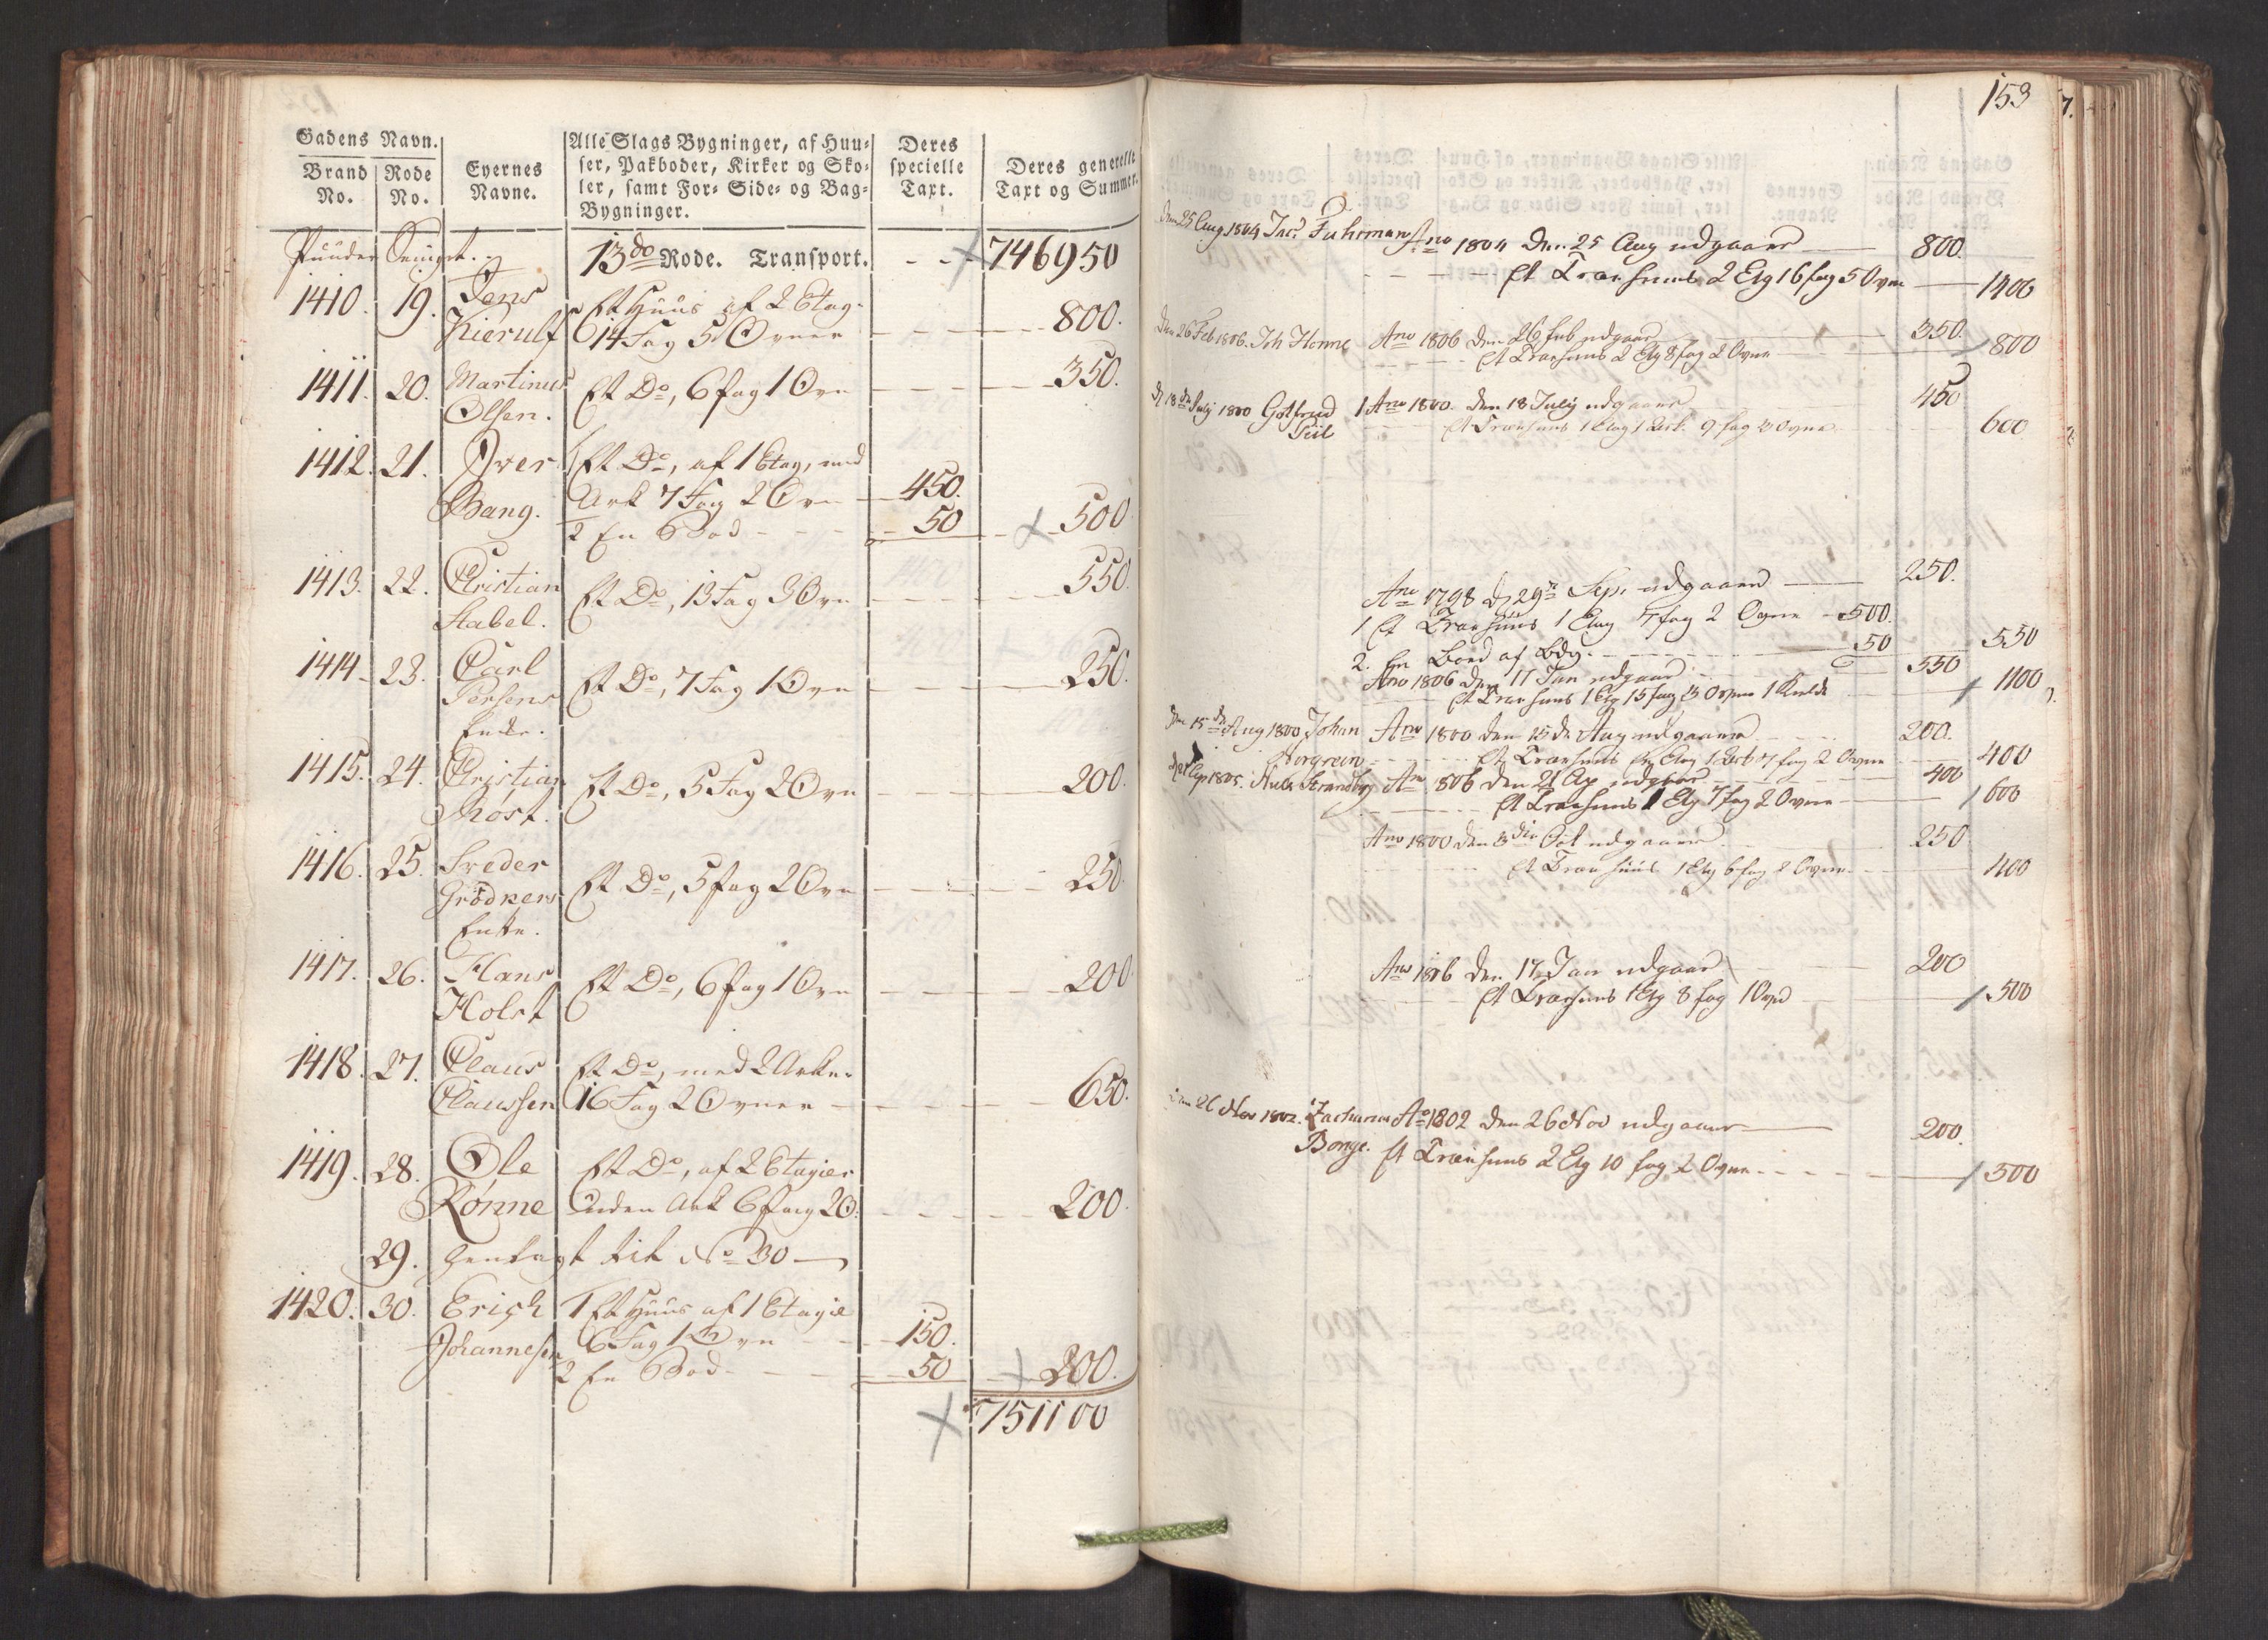 Gadens Navn.
Brand No.
Rode No.
Eyernes Navne.
Alle Slags Bygninger, af Huu-
ser, Pakboder, Kirker og Sko-
ler, samt For- Side- og Bag-
Bygninger.
Deres specielle Taxt.
Deres generelle Taxt og Summer.
13de Rode. Transport. 746950
1410. 19. Jens Et Huus af 2 Etag.
Kierulf 14 Fag 5 Ovner 800.
1411. 20. Martinus Et Do, 6 fag 1 Ovn 350.
Olsen.
1412. 21. Iver 1 Et Do, af 1 Etag, med
Bang. Ark 7 Fag 2 Ovn 450.
2 En Bod 50 500
1413. 22. Christian Et Do, 13 Fag 3 Ovn 550.
Stabel.
1414 23. Carl Et Do, 7 Fag 1 Ovn 250.
Persens
Enke.
1415. 24. Christian Et Do, 5 Fag 2 Ovn 200.
Røst.
1416. 25. Et Do, 5 fag 2 Ovn 250.
Enke.
1417. 26. Hans Et Do, 6 fag 1 Ovn 200
Holst
1418. 27. Claus Et Do, med 2 Arke.
Claussen 16 Fag 2 Ovner 650.
1419. 28. Ole Et Do, af 2 Etagier
Rønne uden Ark 6 fag 2 O. 200.
29. henlagt til No 30
1420. 30. Erich 1 Et Huus af 1 Etagie
Johannesen 6 Fag 1 Ovn 150.
2 En Bod 50 200.
751100
153
Den 25 Aug 1804 Jac. Fuhrman Ano 1804 Den 25 Aug udgaaer 800.
Et Træehuus 2 Etg 16 fag 5 Ovne 1400
Den 26 Feb 1806. Joh Honne Ano 1806 Den 26 Feb udgaaer 350.
Et Træehuus 2 Etg 8 fag 2 Ovne 800
D 18de July 1800 Gotfried 1 Ano 1800. Den 18 July udgaaer 450
Piil Et Træehuus 1 Etag 1 Ark. 9 fag 3 Ovne 600
Ano 1798 D 29de Sep. udgaaer 250.
1 Et Træehuus 1 Etag 7 fag 2 Ovne 500.
2. En Boed af Bdg. 50 550
Ano 1806 Den 17 Jan udgaar 550
Et Træehuus 1 Etg 15 fag 3 Ovne 1100
Den 15de Aug 1800 Johan Ano 1800 Den 15de Aug udgaaer 200.
Norgrein Et Træehuus En Etag 1 Ark 7 fag 2 Ovne 400
Ano 1806 Den 21 Ap udgaar 400
Et Træehuus 1 Etg 7 fag 2 Ovne 600
Ano 1800 Den 3die Oct udgaaer 250
Et Træehuus 1 Etg 6 fag 2 Ovne 400
Ano 1806 Den 17 Jan udgaar 200
Et Træehuus 1 Etg 8 fag 1 Ovn 500
Den 26 Nov 1802. Zacharias Ao 1802 Den 26 Nov udgaaer 200.
Bonge. Et Træehuus 2 Etg 10 fag 2 Ovne 500